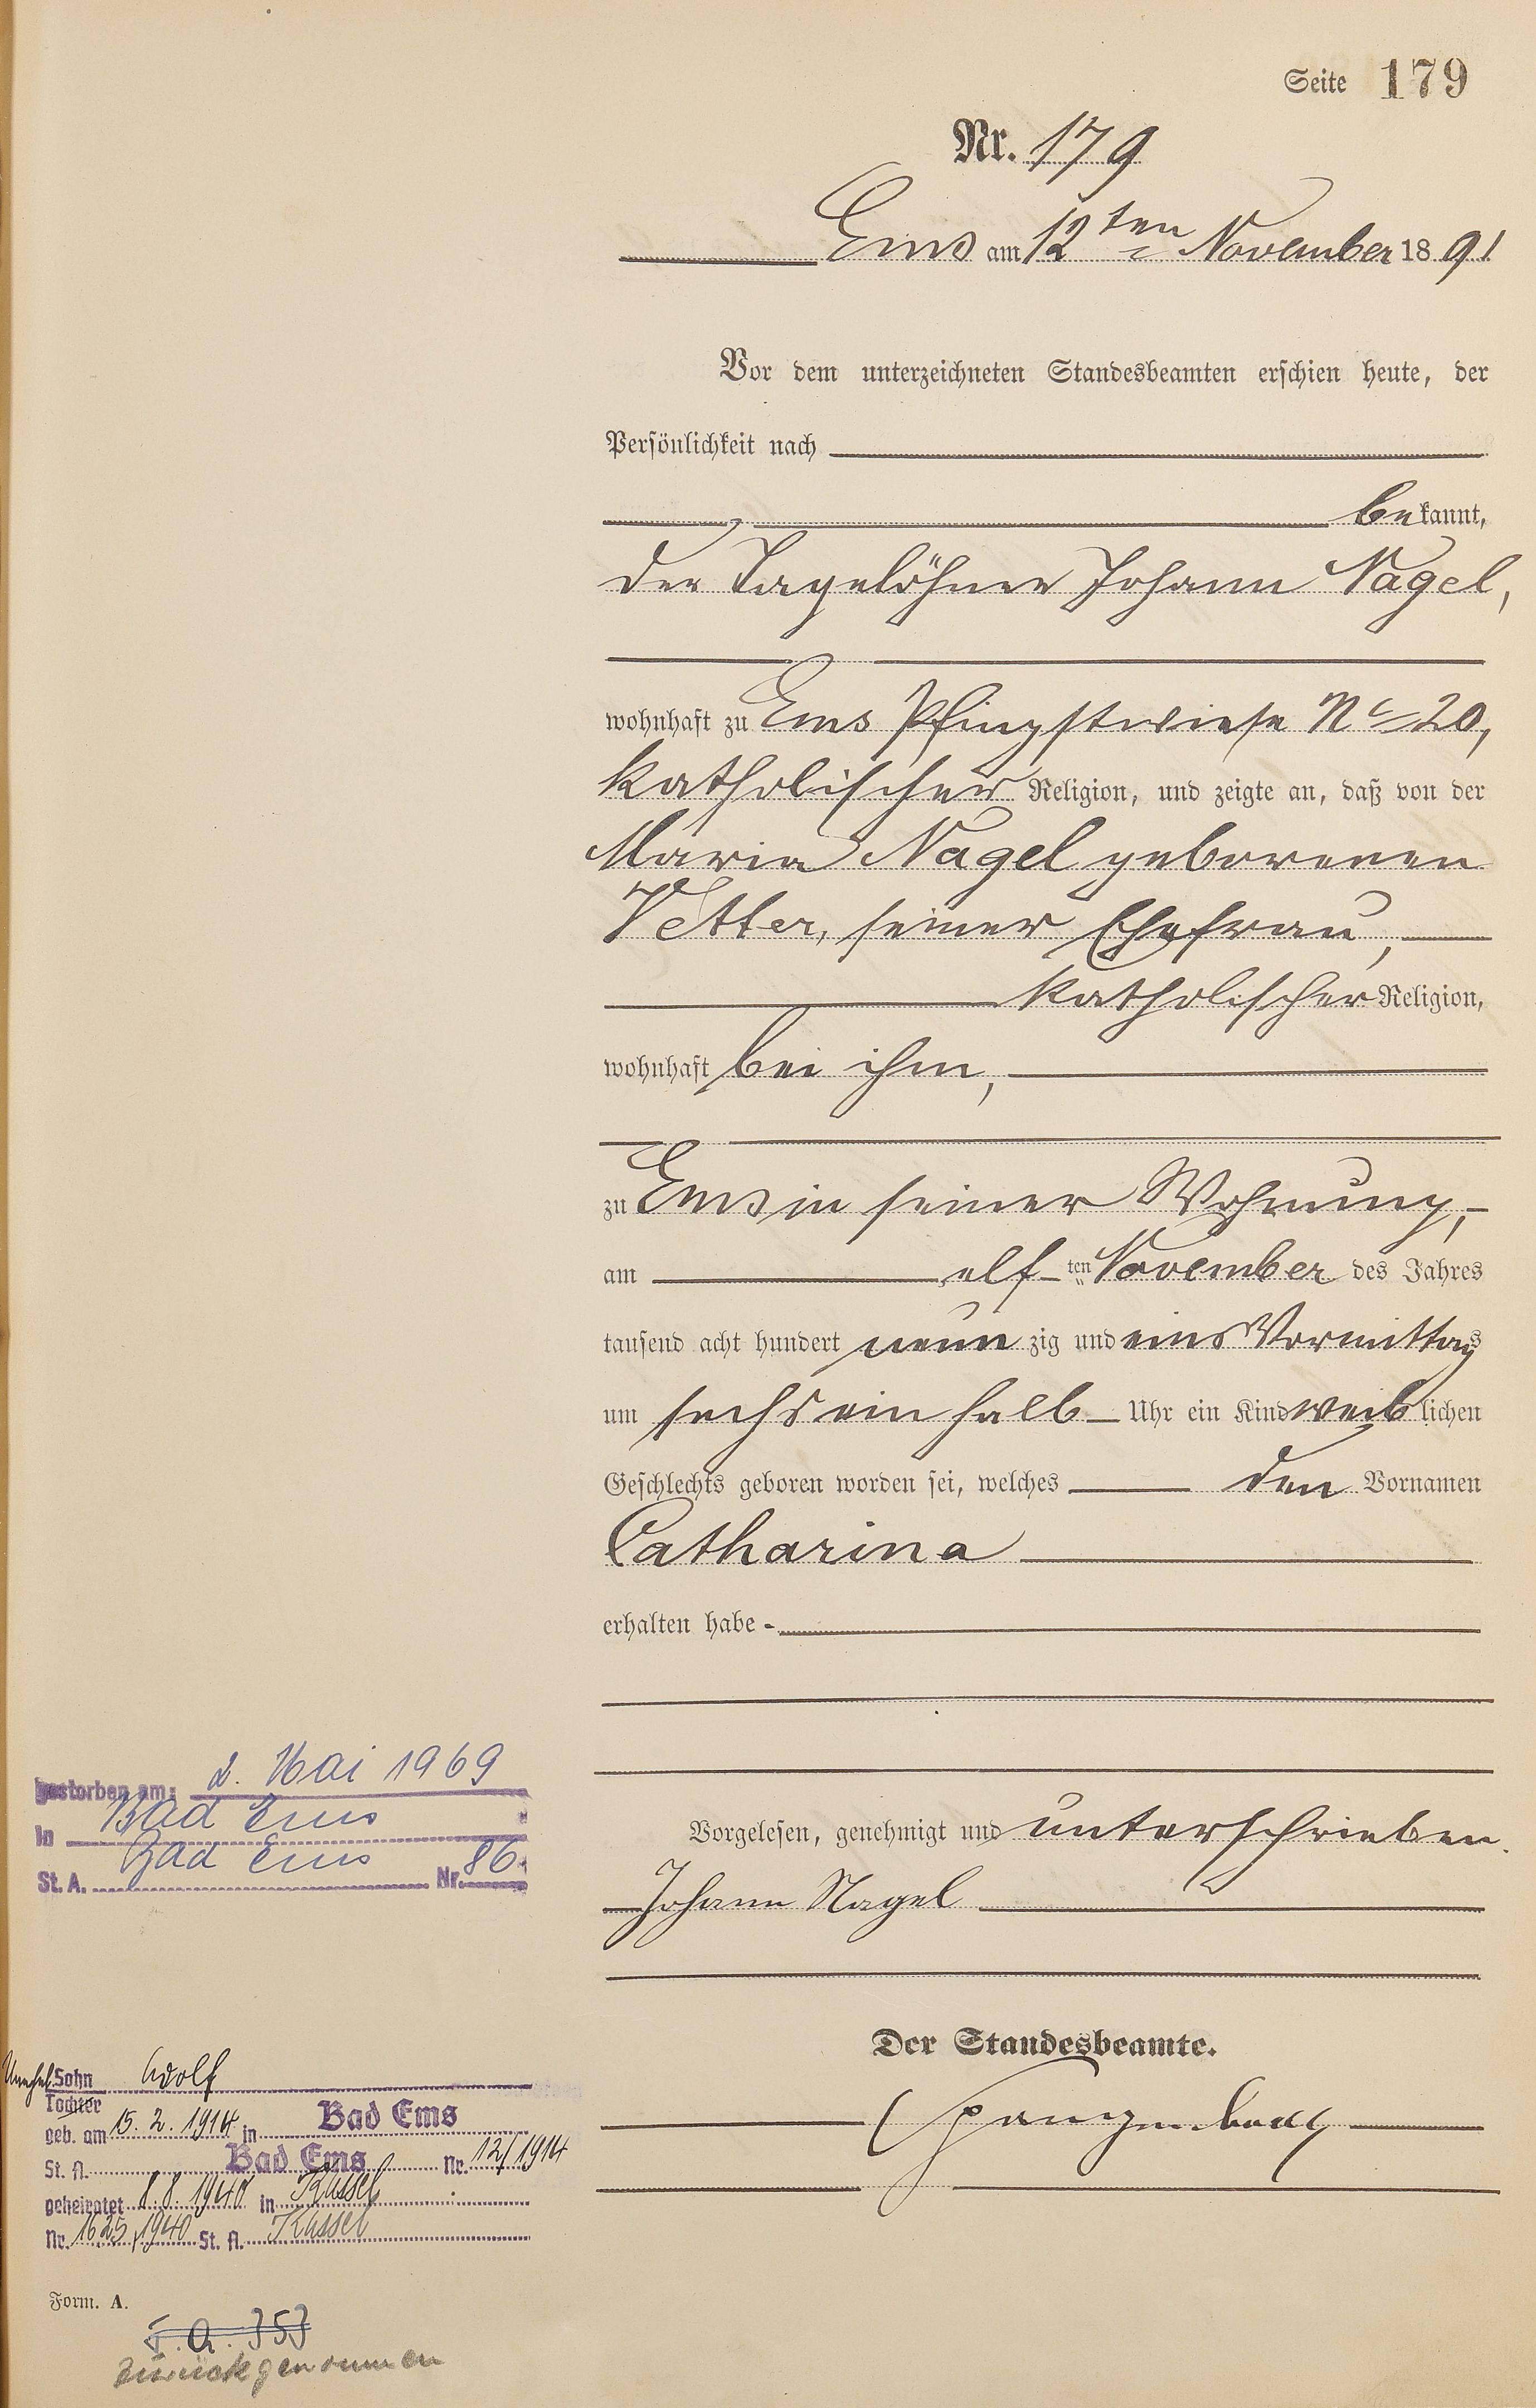 Seite 179
Nr. 179
Ems am 12ten November 1891
Vor dem unterzeichneten Standesbeamten erschien heute, der
Persönlichkeit nach
bekannt,
der Tagelöhner Johann Nagel,
wohnhaft zu Ems Pfingstwiese No 20,
katholischer Religion, und zeigte an, daß von der
Maria Nagel geborenen
Vetter, seiner Ehefrau,
katholischer Religion,
wohnhaft bei ihm,
zu Ems in seiner Wohnung,
am elf ten November des Jahres
tausend acht hundert neun zig und eins Vormittags
um sechs ein halb Uhr ein Kind weiblichen
Geschlechts geboren worden sei, welches den Vornamen
Catharina
erhalten habe
Vorgelesen, genehmigt und unterschrieben.
Johann Nagel
Der Standesbeamte.
Spangenberg
gestorben am: 2. Mai 1969
in Bad Ems
St. A. Bad Ems Nr. 86
Unehel. Sohn Adolf
Tochter
geb. am 15. 2. 1914 in Bad Ems
St. A. Bad Ems Nr. 12/1914
geheiratet 8.8. 1940 in Kassel
Nr. 1625/1940 St. A. Kassel
Form. A.
zurückgenommen